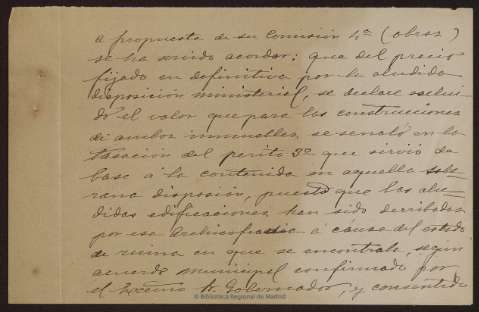 a propuesta de su Comisión 4ª (obras)
se ha servido acordar: que del precio
fijado en definitiva por la aludida
disposición ministerial, se deduce
do el valor que para las construcciones
de ambos inmuebles, se señaló en la
tasación del perito 3º que sirvió de
base á la contenida en aquella sobe-
rana disposión, puesto que las alu-
didas edificaciones han sido derribadas
por esa Archicofradia á causa del estado
de ruina en que se encontraba, según
acuerdo municipal confirmado por
el Excmo Sr. Gobernador, y consentido
© Biblioteca Regional de Madrid